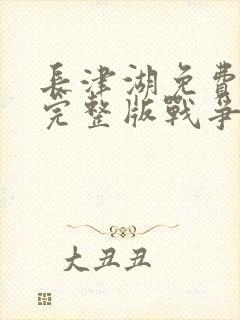 長津湖免費
完整版戰爭
大丑丑